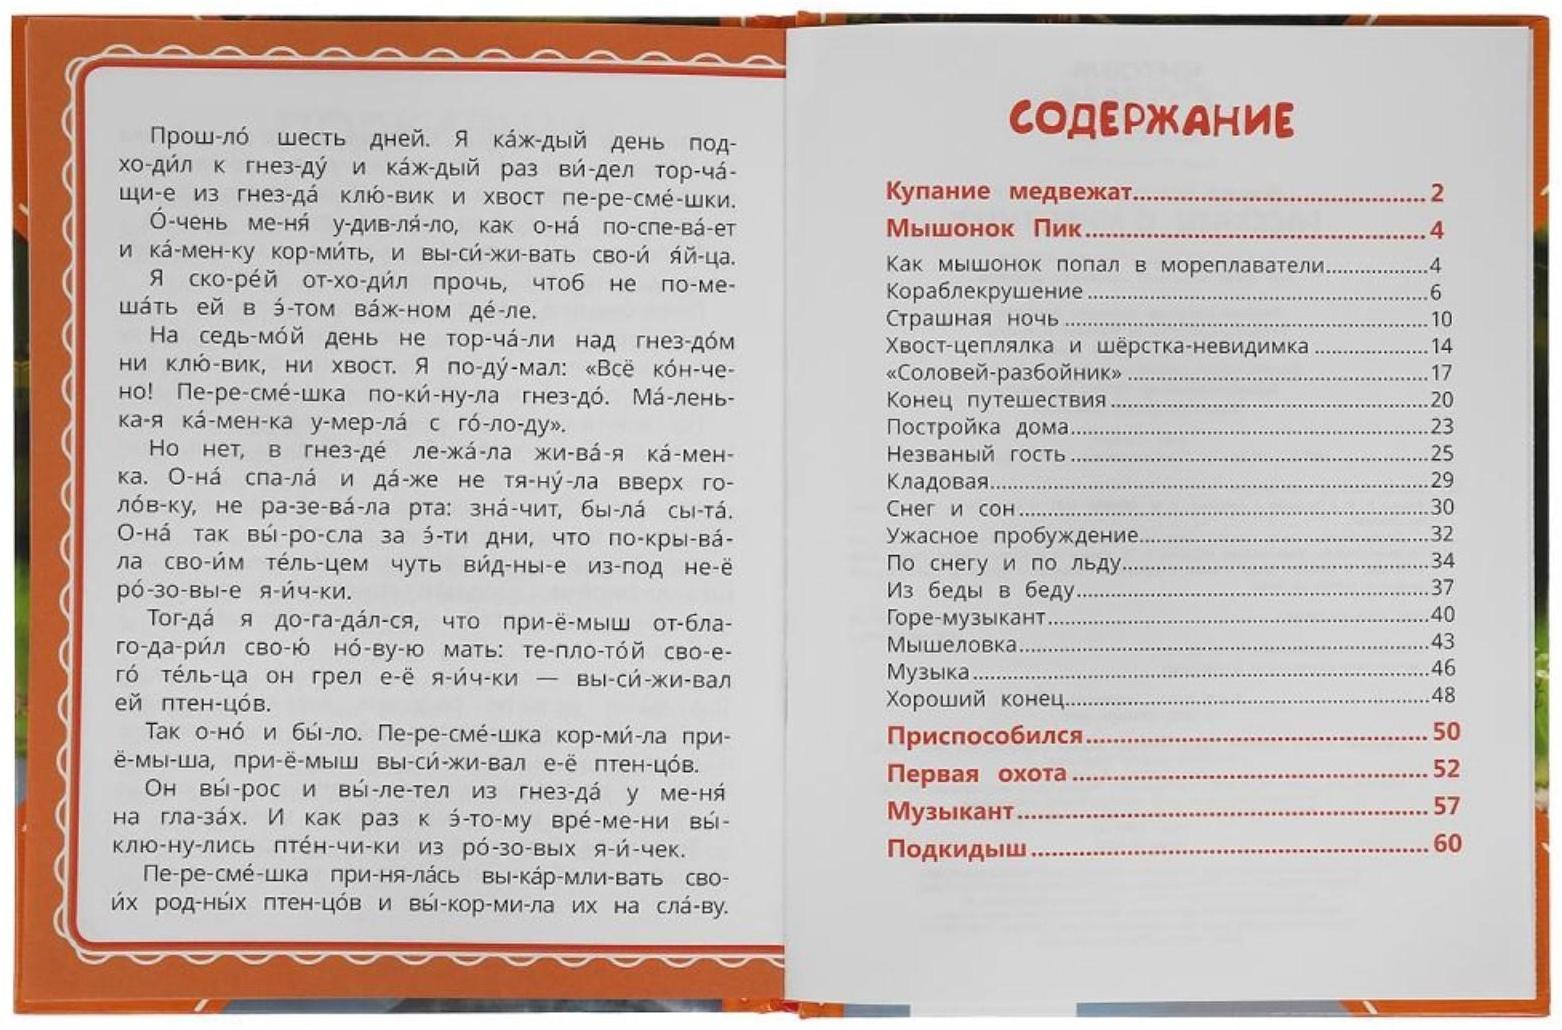 Прош-ло́ шесть дней. Я ка́ж-дый день под-
хо-ди́л к гнез-ду́ и ка́ж-дый раз ви́-дел тор-ча́-
щи-е из гнез-да́ клю́-вик и хвост пе-ре-сме́-шки.
О́-чень ме-ня́ у-див-ля́-ло, как о-на́ по-спе-ва́-ет
и ка́-мен-ку кор-ми́ть, и вы-си́-жи-вать сво-и́ я́й-ца.
Я ско-ре́й от-хо-ди́л прочь, чтоб не по-ме-
ша́ть ей в э́-том ва́ж-ном де́-ле.
На седь-мо́й день не тор-ча́-ли над гнез-до́м
ни клю́-вик, ни хвост. Я по-ду́-мал: «Всё ко́н-че-
но! Пе-ре-сме́-шка по-ки́-ну-ла гнез-до́. Ма́-лень-
ка-я ка́-мен-ка у-мер-ла́ с го́-ло-ду».
Но нет, в гнез-де́ ле-жа́-ла жи-ва́-я ка́-мен-
ка. О-на́ спа-ла́ и да́-же не тя-ну́-ла вверх го-
ло́в-ку, не ра-зе-ва́-ла рта: зна́-чит, бы-ла́ сы-та́.
О-на́ так вы́-ро-сла за э́-ти дни, что по-кры-ва́-
ла сво-и́м те́ль-цем чуть ви́д-ны-е из-под не-ё
ро́-зо-вы-е я-и́ч-ки.
Тог-да́ я до-га-да́л-ся, что при-ё-мыш от-бла-
го-да-ри́л сво-ю́ но́-ву-ю мать: те-пло-то́й сво-е-
го́ те́ль-ца он грел е-ё я-и́ч-ки — вы-си́-жи-вал
ей птен-цо́в.
Так о-но́ и бы́-ло. Пе-ре-сме́-шка кор-ми́-ла при-
ё-мы-ша, при-ё-мыш вы-си́-жи-вал е-ё птен-цо́в.
Он вы́-рос и вы́-ле-тел из гнез-да́ у ме-ня́
на гла-за́х. И как раз к э́-то-му вре́-ме-ни вы́-
клю-ну-лись пте́н-чи-ки из ро́-зо-вых я-и́-чек.
Пе-ре-сме́-шка при-ня-ла́сь вы-ка́р-мли-вать сво-
и́х род-ны́х птен-цо́в и вы́-кор-ми-ла их на сла́-ву.
СОДЕРЖАНИЕ
Купание медвежат.......... 2
Мышонок Пик.......... 4
Как мышонок попал в мореплаватели..........4
Кораблекрушение..........6
Страшная ночь..........10
Хвост-цеплялка и шёрстка-невидимка..........14
«Соловей-разбойник»..........17
Конец путешествия..........20
Постройка дома..........23
Незваный гость..........25
Кладовая..........29
Снег и сон..........30
Ужасное пробуждение..........32
По снегу и по льду..........34
Из беды в беду..........37
Горе-музыкант..........40
Мышеловка..........43
Музыка..........46
Хороший конец..........48
Приспособился.......... 50
Первая охота.......... 52
Музыкант.......... 57
Подкидыш.......... 60